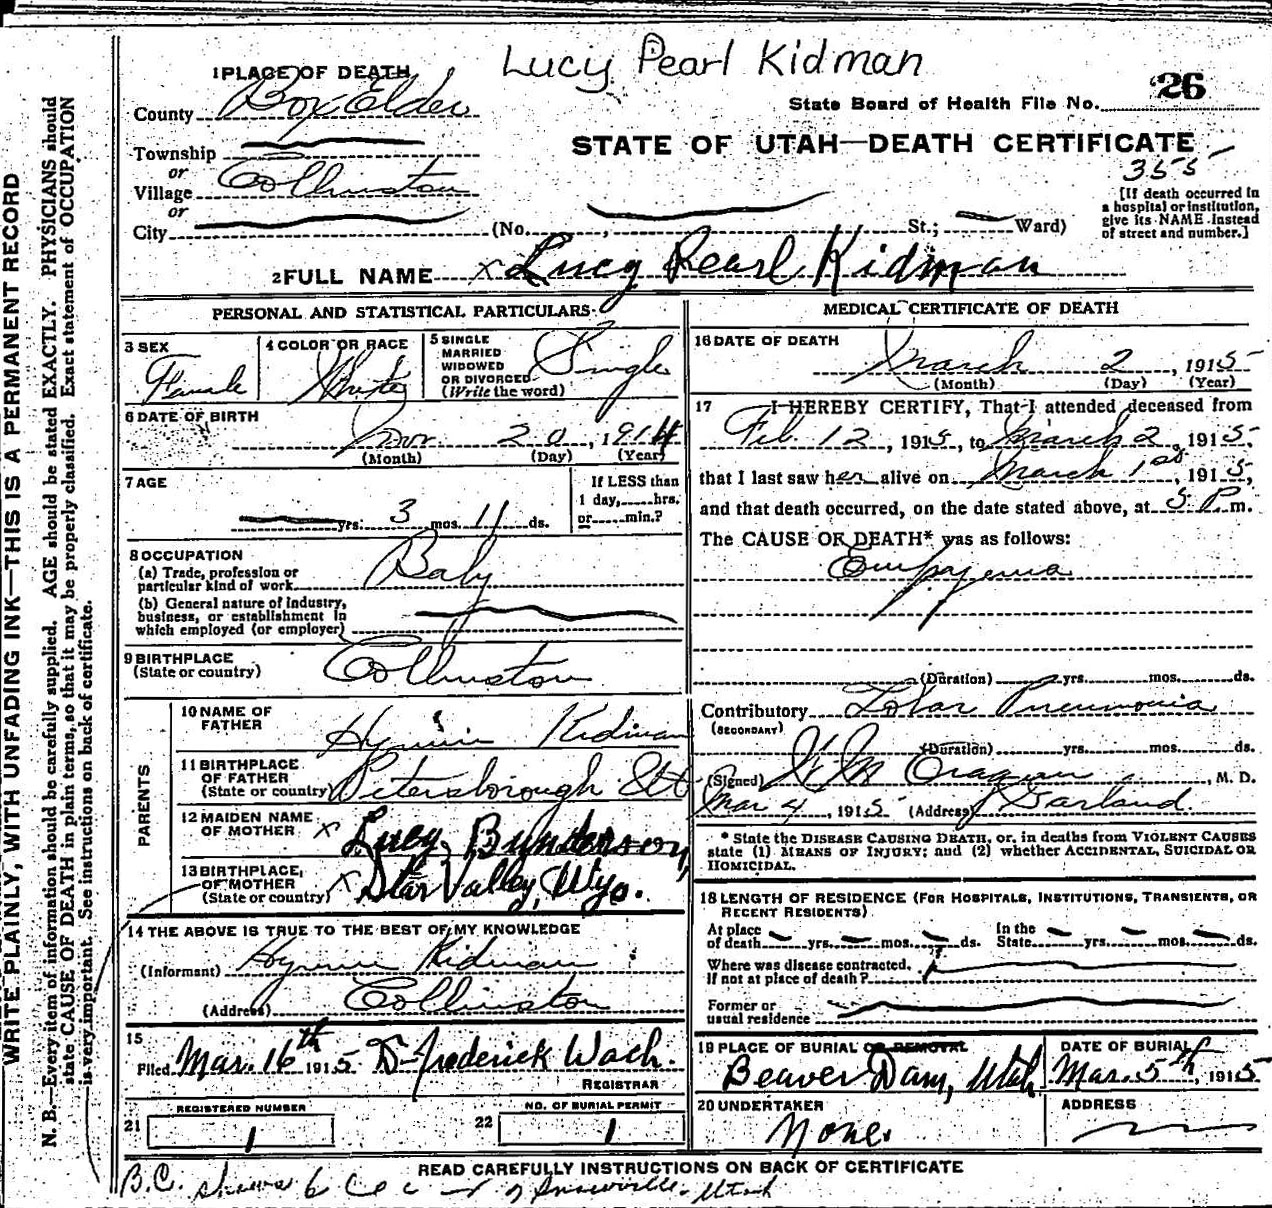 Lucy Pearl Kidman
1 PLACE OF DEATH
26
County Box Elder
State Board of Health File No.
Township
STATE OF UTAH—DEATH CERTIFICATE
or
355
Village Collinston
or
City
(No. , St.; Ward)
[If death occurred in
a hospital or institution,
give its NAME instead
of street and number.]
2 FULL NAME x Lucy Pearl Kidman
PERSONAL AND STATISTICAL PARTICULARS
3 SEX
Female
4 COLOR OR RACE
White
5 SINGLE
MARRIED
WIDOWED
OR DIVORCED
(Write the word)
Single
6 DATE OF BIRTH
Nov. 20, 1914
(Month) (Day) (Year)
7 AGE
yrs. 3 mos. 11 ds.
If LESS than
1 day, hrs.
or min.?
8 OCCUPATION
(a) Trade, profession or
particular kind of work
Baby
(b) General nature of industry,
business, or establishment in
which employed (or employer)
9 BIRTHPLACE
(State or country)
Collinston
PARENTS
10 NAME OF
FATHER
Hyrum Kidman
11 BIRTHPLACE
OF FATHER
(State or country)
Petersborough Ut
12 MAIDEN NAME
OF MOTHER
x Lucy Bunderson,
13 BIRTHPLACE,
OF MOTHER
(State or country)
x Star Valley, Wyo.
14 THE ABOVE IS TRUE TO THE BEST OF MY KNOWLEDGE
(Informant) Hyrum Kidman
(Address) Collinston
15
Filed Mar. 16th 1915 D. Frederick Wach.
REGISTRAR
21 REGISTERED NUMBER
1
22 NO. OF BURIAL PERMIT
1
MEDICAL CERTIFICATE OF DEATH
16 DATE OF DEATH
March 2, 1915
(Month) (Day) (Year)
17 I HEREBY CERTIFY, That I attended deceased from
Feb. 12, 1915, to March 2, 1915.
that I last saw her alive on March 1st, 1915,
and that death occurred, on the date stated above, at 5 P.m.
The CAUSE OF DEATH* was as follows:
Empyemia
(Duration) yrs. mos. ds.
Contributory Lobar Pneumonia
(SECONDARY)
(Duration) yrs. mos. ds.
(Signed) , M. D.
Mar 4, 1915 (Address) Garland.
* State the DISEASE CAUSING DEATH, or, in deaths from VIOLENT CAUSES
state (1) MEANS OF INJURY; and (2) whether ACCIDENTAL, SUICIDAL OR
HOMICIDAL.
18 LENGTH OF RESIDENCE (FOR HOSPITALS, INSTITUTIONS, TRANSIENTS, OR
RECENT RESIDENTS)
At place
of death yrs. mos. ds.
In the
State yrs. mos. ds.
Where was disease contracted.
if not at place of death?
Former or
usual residence
19 PLACE OF BURIAL OR REMOVAL
Beaver Dam, Utah
DATE OF BURIAL
Mar. 5th, 1915
20 UNDERTAKER
None.
ADDRESS
READ CAREFULLY INSTRUCTIONS ON BACK OF CERTIFICATE
B.C. Utah
WRITE PLAINLY, WITH UNFADING INK—THIS IS A PERMANENT RECORD
N. B.—Every item of information should be carefully supplied. AGE should be stated EXACTLY. PHYSICIANS should
state CAUSE OF DEATH in plain terms, so that it may be properly classified. Exact statement of OCCUPATION
is very important. See instructions on back of certificate.